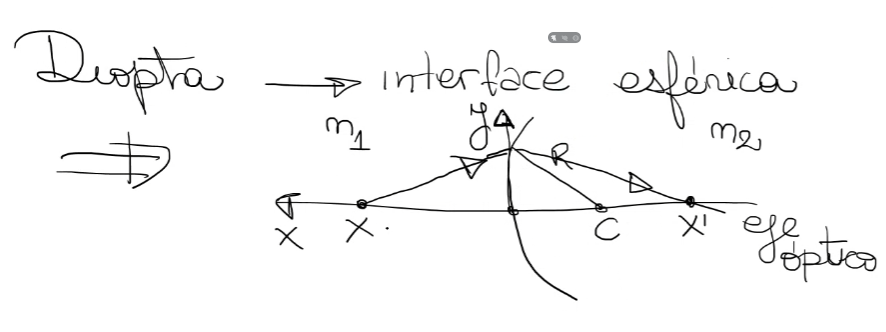 Dioptra → interface esférica
n₁ y n₂
R
X X. C X' eje
óptico